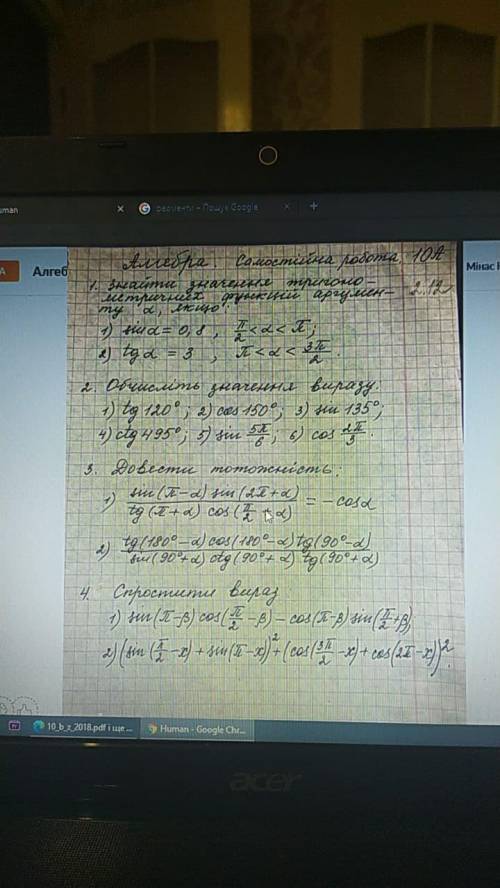 uman × G ферменти – Пошук Google × +
А Алгеб Мінас І
Алгебра Самостійна робота 10А
1. Знайти значення тригоно 2.12
метричних функцій аргумен-
ту α, якщо:
1) sin α = 0,8 , π/2 < α < π;
2) tg α = 3 , π < α < 3π/2.
2. Обчисліть значення виразу.
1) tg 120°; 2) cos 150°; 3) sin 135°;
4) ctg 495°; 5) sin 5π/6; 6) cos 2π/3.
3. Довести тотожність:
1) sin(π-α) sin(2π+α) / tg(π+α) cos(π/2+α) = -cosα
2) tg(180°-α) cos(180°-α) tg(90°-α) / sin(90°+α) ctg(90°+α) tg(90°+α)
4. Спростити вираз
1) sin(π-β) cos(π/2-β) - cos(π-β) sin(π/2+β)
2) (sin(π/2-x) + sin(π-x))² + (cos(3π/2-x) + cos(2π-x))².
10_b_z_2018.pdf і ще ... Human - Google Chr...
acer